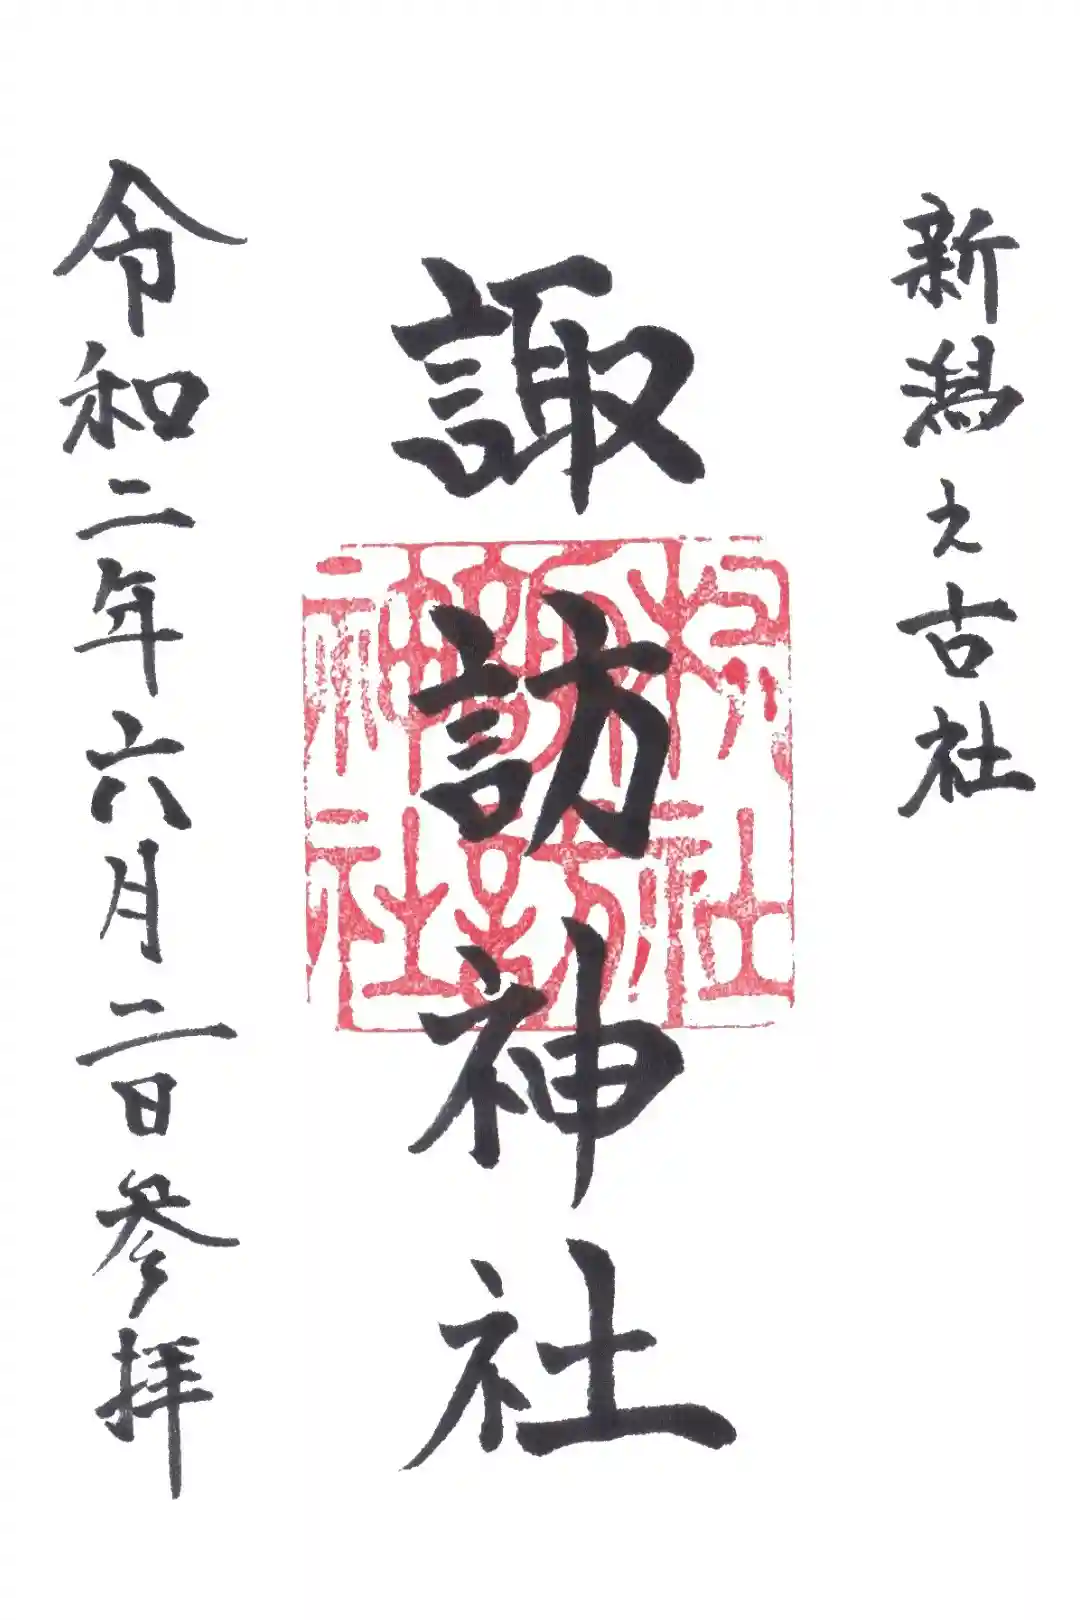 新潟之古社
諏訪神社
令和二年六月二日参拝
社
諏訪
神社